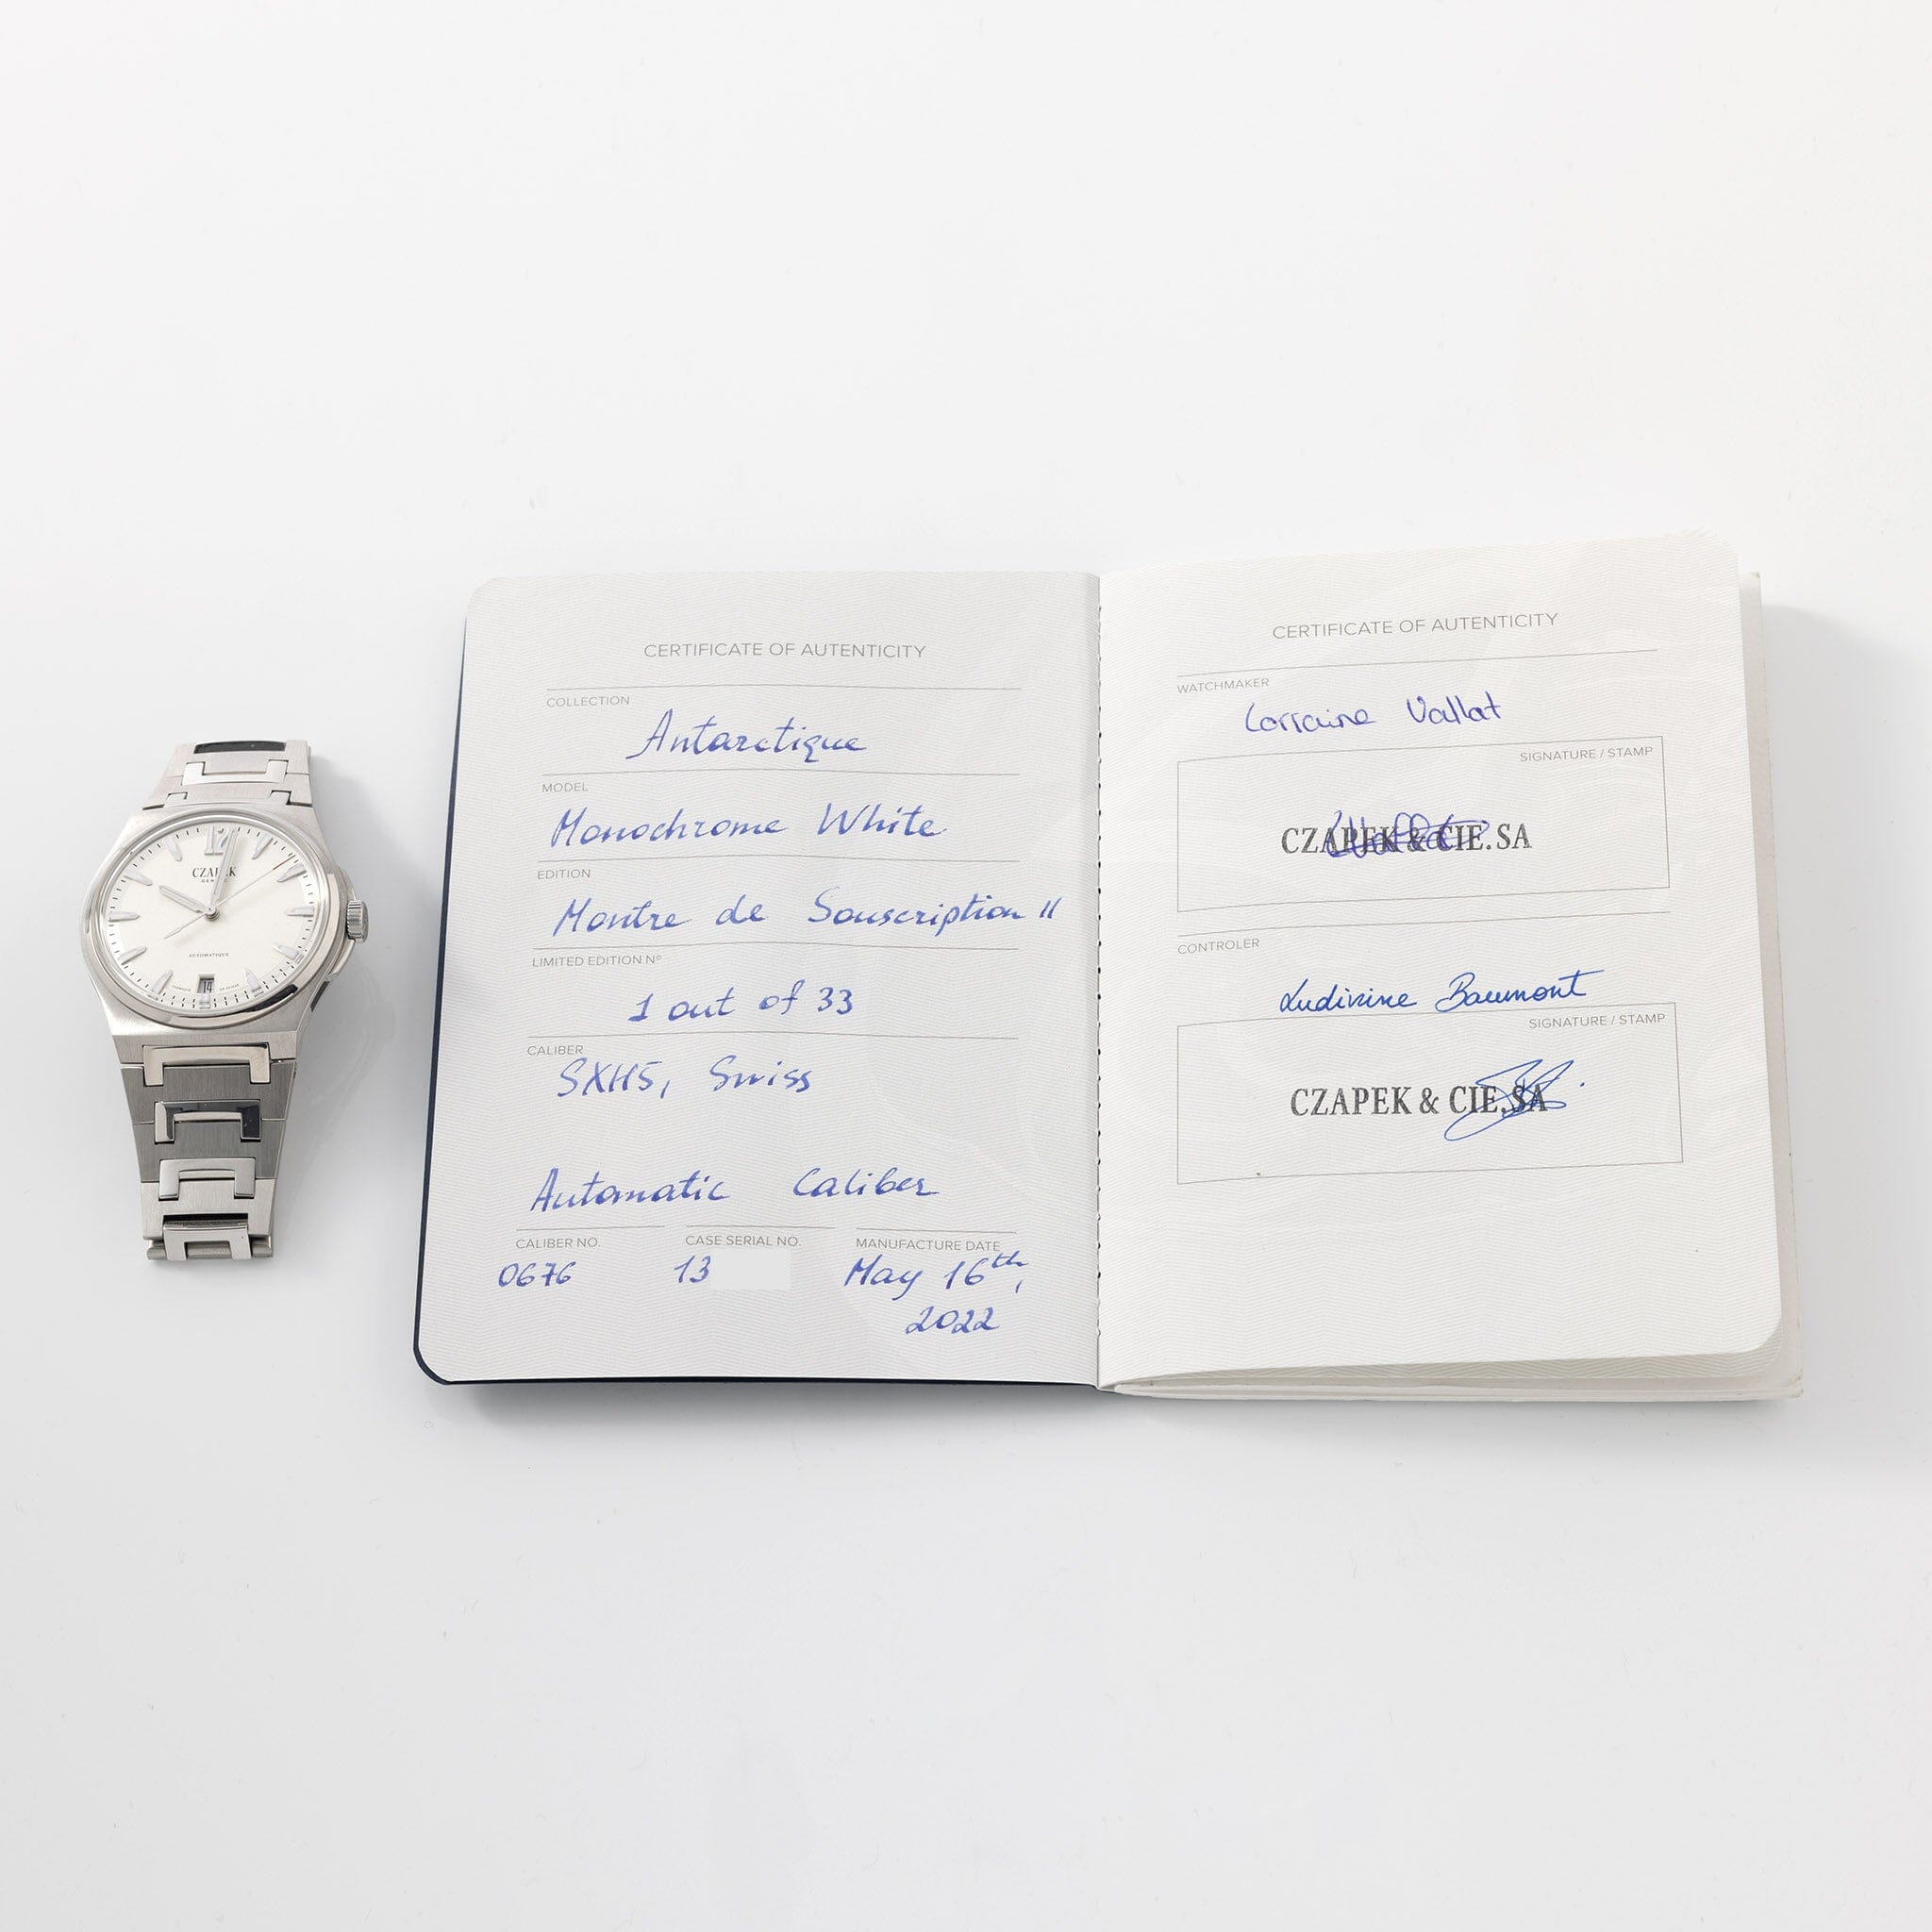 12
CZAPEK
AUTOMATIQUE
14
CERTIFICATE OF AUTENTICITY
COLLECTION
Antarctique
MODEL
Monochrome White
EDITION
Montre de Souscription II
LIMITED EDITION Nº
1 out of 33
CALIBER
SXH5, Swiss
Automatic Caliber
CALIBER NO.
0676
CASE SERIAL NO.
13
MANUFACTURE DATE
May 16th,
2022
CERTIFICATE OF AUTENTICITY
WATCHMAKER
Lorraine Vallat
SIGNATURE / STAMP
CZAPEK & CIE.SA
CONTROLER
Ludivine Baumont
SIGNATURE / STAMP
CZAPEK & CIE.SA